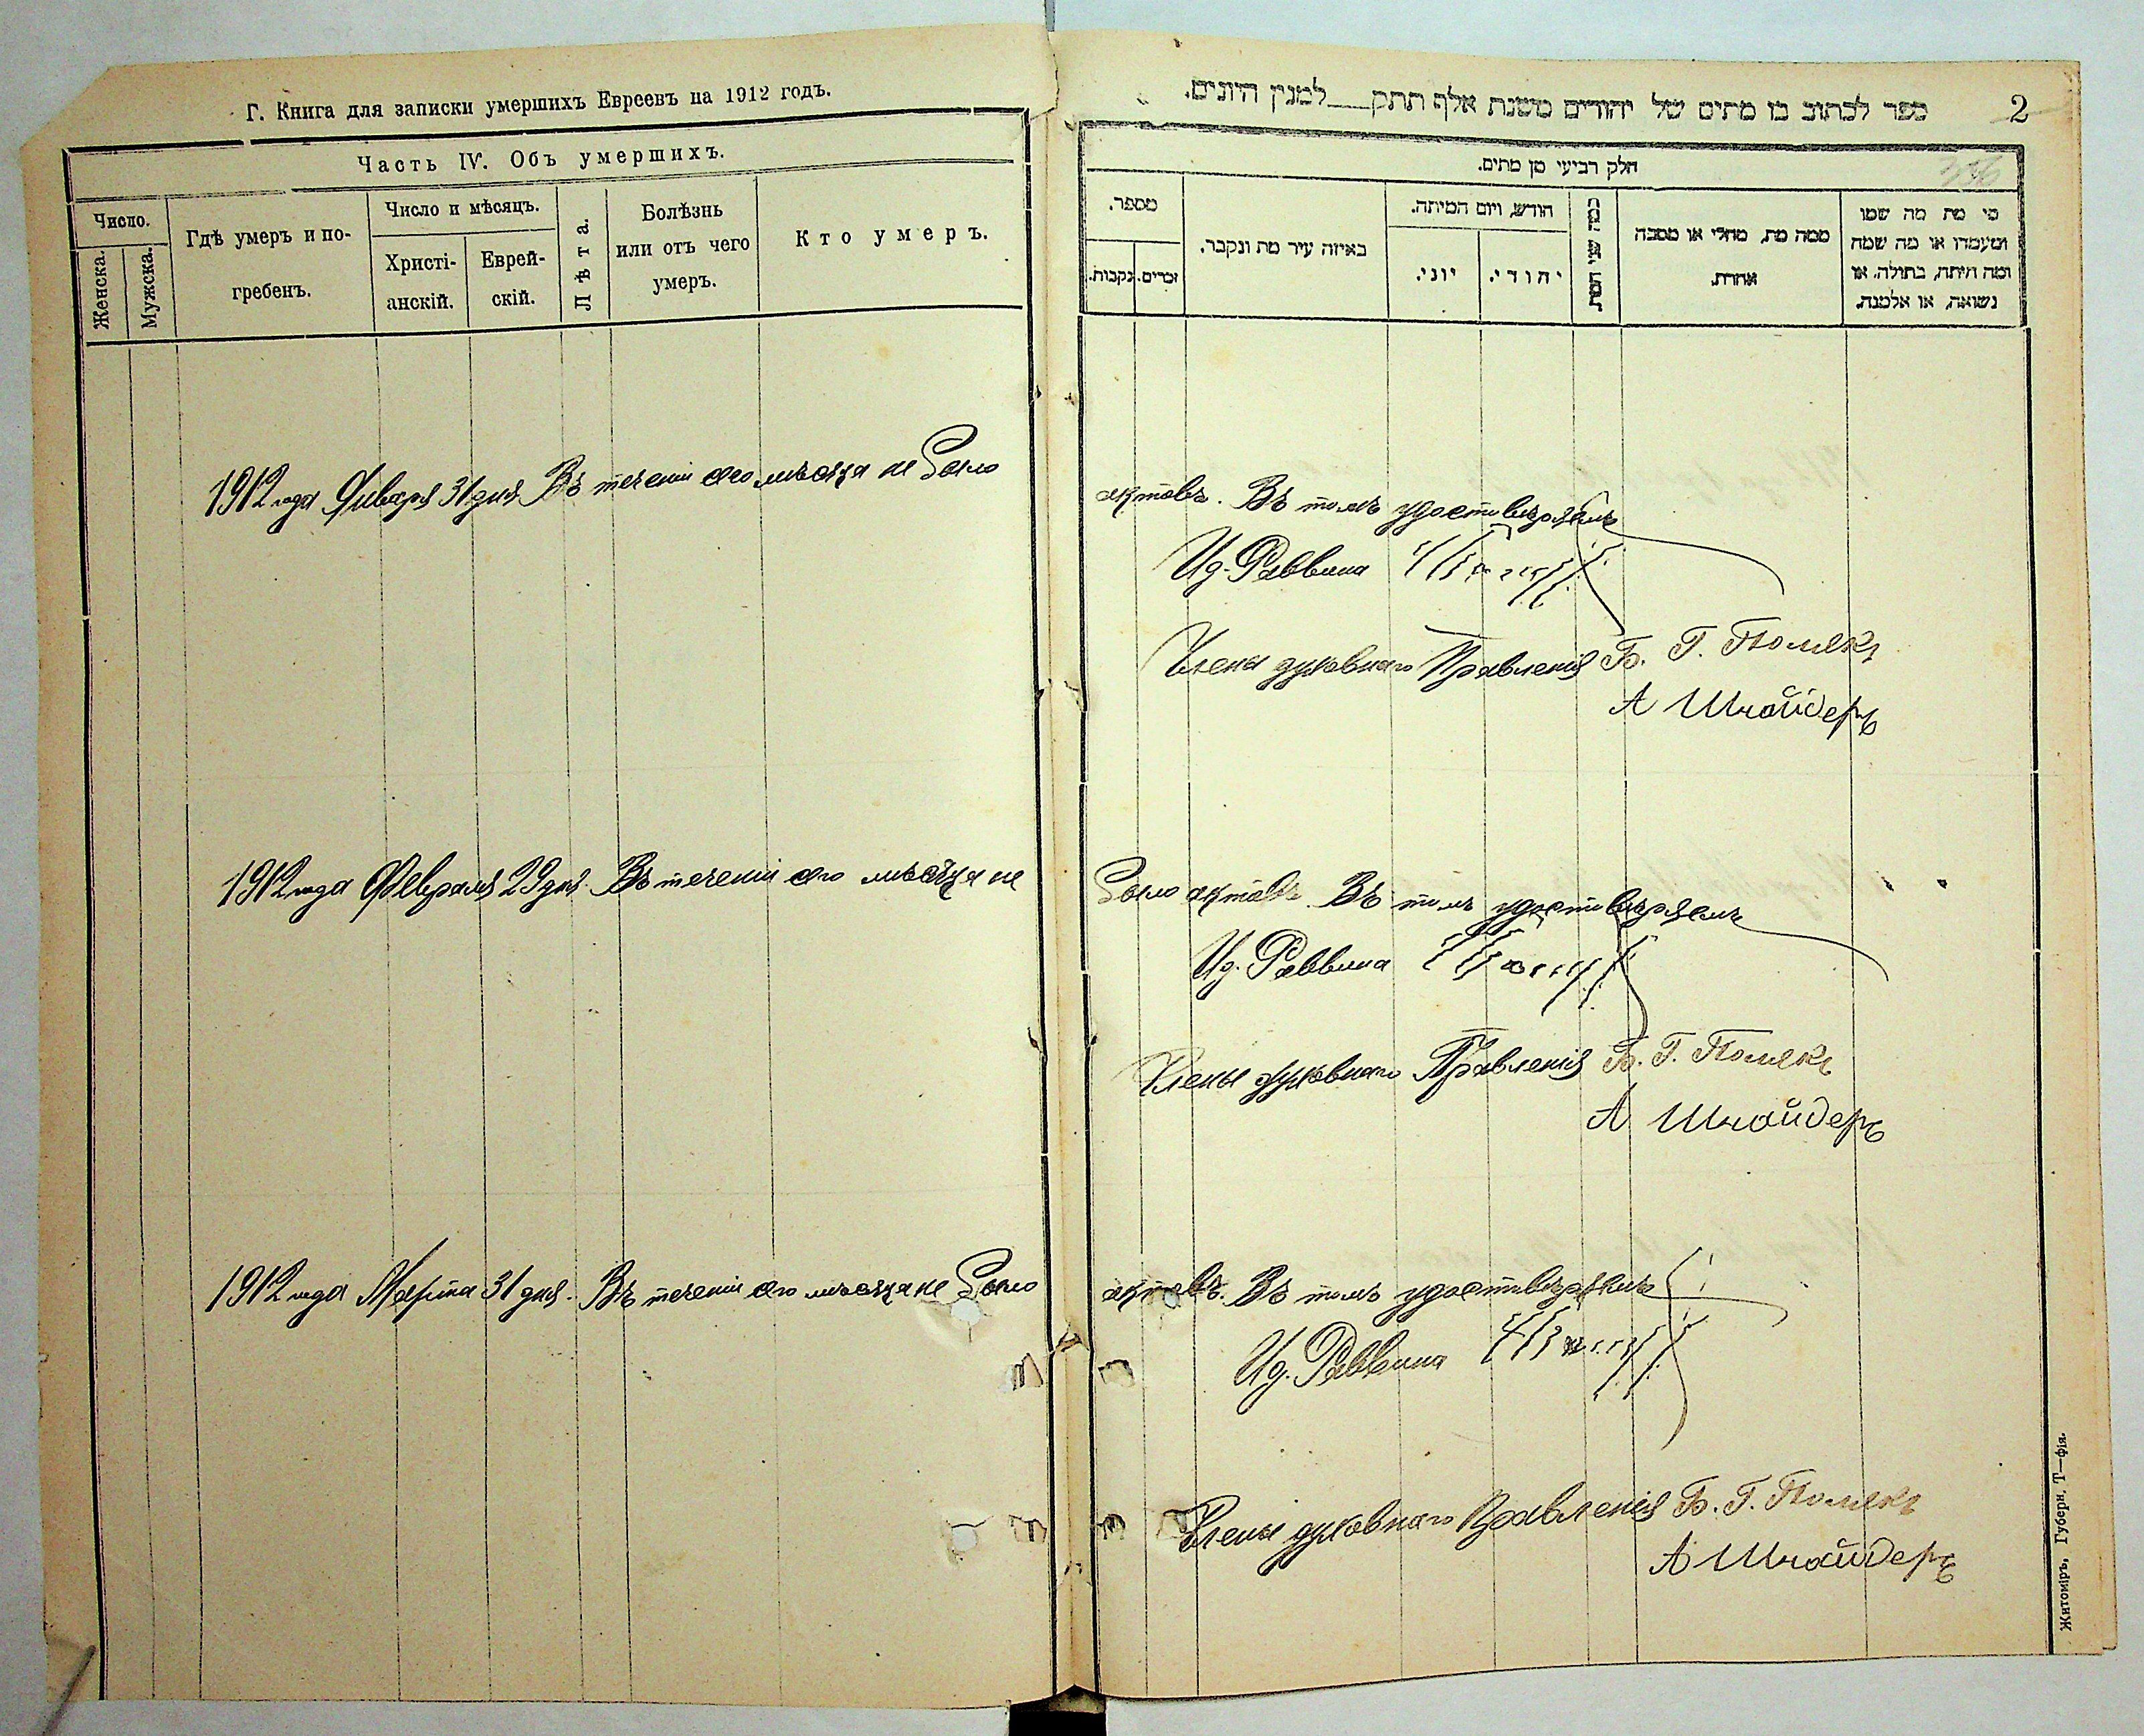 Г. Книга для записки умершихъ Евреевъ на 1912 годъ.
Часть IV. Объ умершихъ.
Число.
Женска.
Мужска.
Гдѣ умеръ и по-
гребенъ.
Число и мѣсяцъ.
Христі-
анскій.
Еврей-
скій.
Лѣта.
Болѣзнь
или отъ чего
умеръ.
Кто умеръ.
1912 года Января 31 дня Въ теченіи сего мѣсяца не было
1912 года Февраля 29 дня. Въ теченіи сего мѣсяца не
1912 года Марта 31 дня. Въ теченіи сего мѣсяца не было
ספר לכתוב בו מתים של יהודים משנת אלף תתק למנין היונים.
2
חלק רביעי מן מתים.
מספר.
נקבות.
זכרים.
באיזה עיר מת ונקבר.
חודש, ויום המיתה.
יוני.
יהודי.
כמה שני המת
ממה מת, מחלי או מסבה
אחרת.
מי מת מה שמו
ומעמדו או מה שמה
ומה היתה, בתולה, או
נשואה, או אלמנה.
актовъ. Въ томъ удостовѣряемъ
Ид. Раввина
Члены духовнаго Правленія Б. Г. Полякъ
А Шнайдеръ
было актовъ. Въ томъ удостовѣряемъ
Ид. Раввина
Члены духовнаго Правленія Б. Г. Полякъ
А Шнайдеръ
актовъ. Въ томъ удостовѣряемъ
Ид. Раввина
Члены духовнаго Правленія Б. Г. Полякъ
А Шнайдеръ
Житоміръ, Губерн. Т—фія.